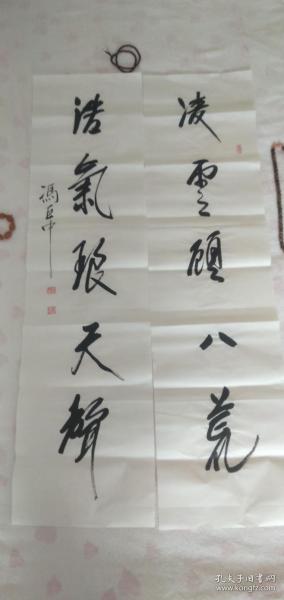 凌雲顧八荒
浩氣琅天聲
馮巨中
孔夫子旧书网